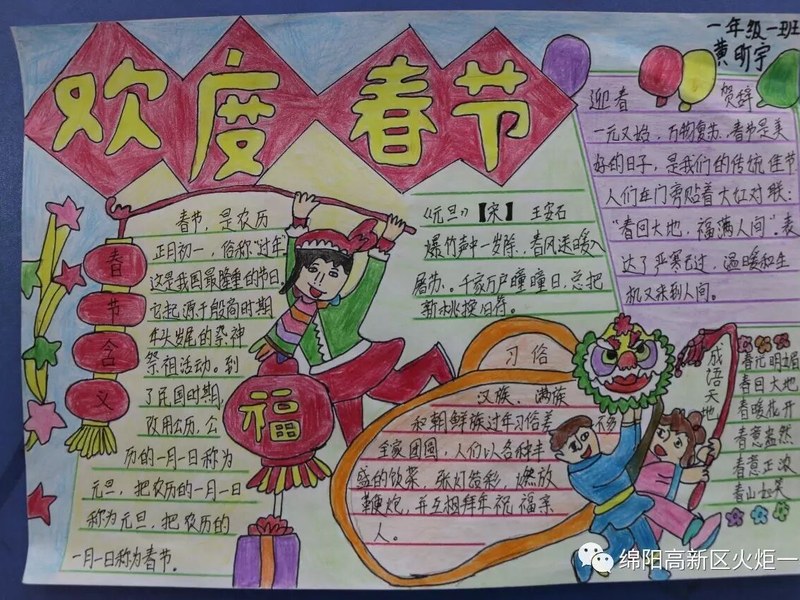 欢度春节
一年级一班
黄町宇
春节含义
春节，是农历
正月初一，俗称“过年
这是我国最隆重的节日
它起源于殷商时期
年头岁尾的祭神
祭祖活动。到
了民国时期，
改用公历，公
历的一月一日称为
元旦，把农历的一月一日
称为元旦，把农历的
一月一日称为春节。
福
《元旦》【宋】 王安石
爆竹声中一岁除，春风送暖入
屠苏。千家万户曈曈日，总把
新桃换旧符。
习俗
汉族、满族
和朝鲜族过年习俗差不多
全家团圆，人们以各种丰
盛的饮菜，张灯结彩，燃放
鞭炮，并互相拜年祝福亲
人。
迎春 贺辞
一元又始，万物复苏，春节是美
好的日子，是我们的传统佳节
人们在门旁贴着大红对联：
“春回大地，福满人间”表
达了严寒已过，温暖和生
机又来到人间。
成语天地
春光明媚
春回大地
春暖花开
春意盎然
春意正浓
春山如笑
绵阳高新区火炬一